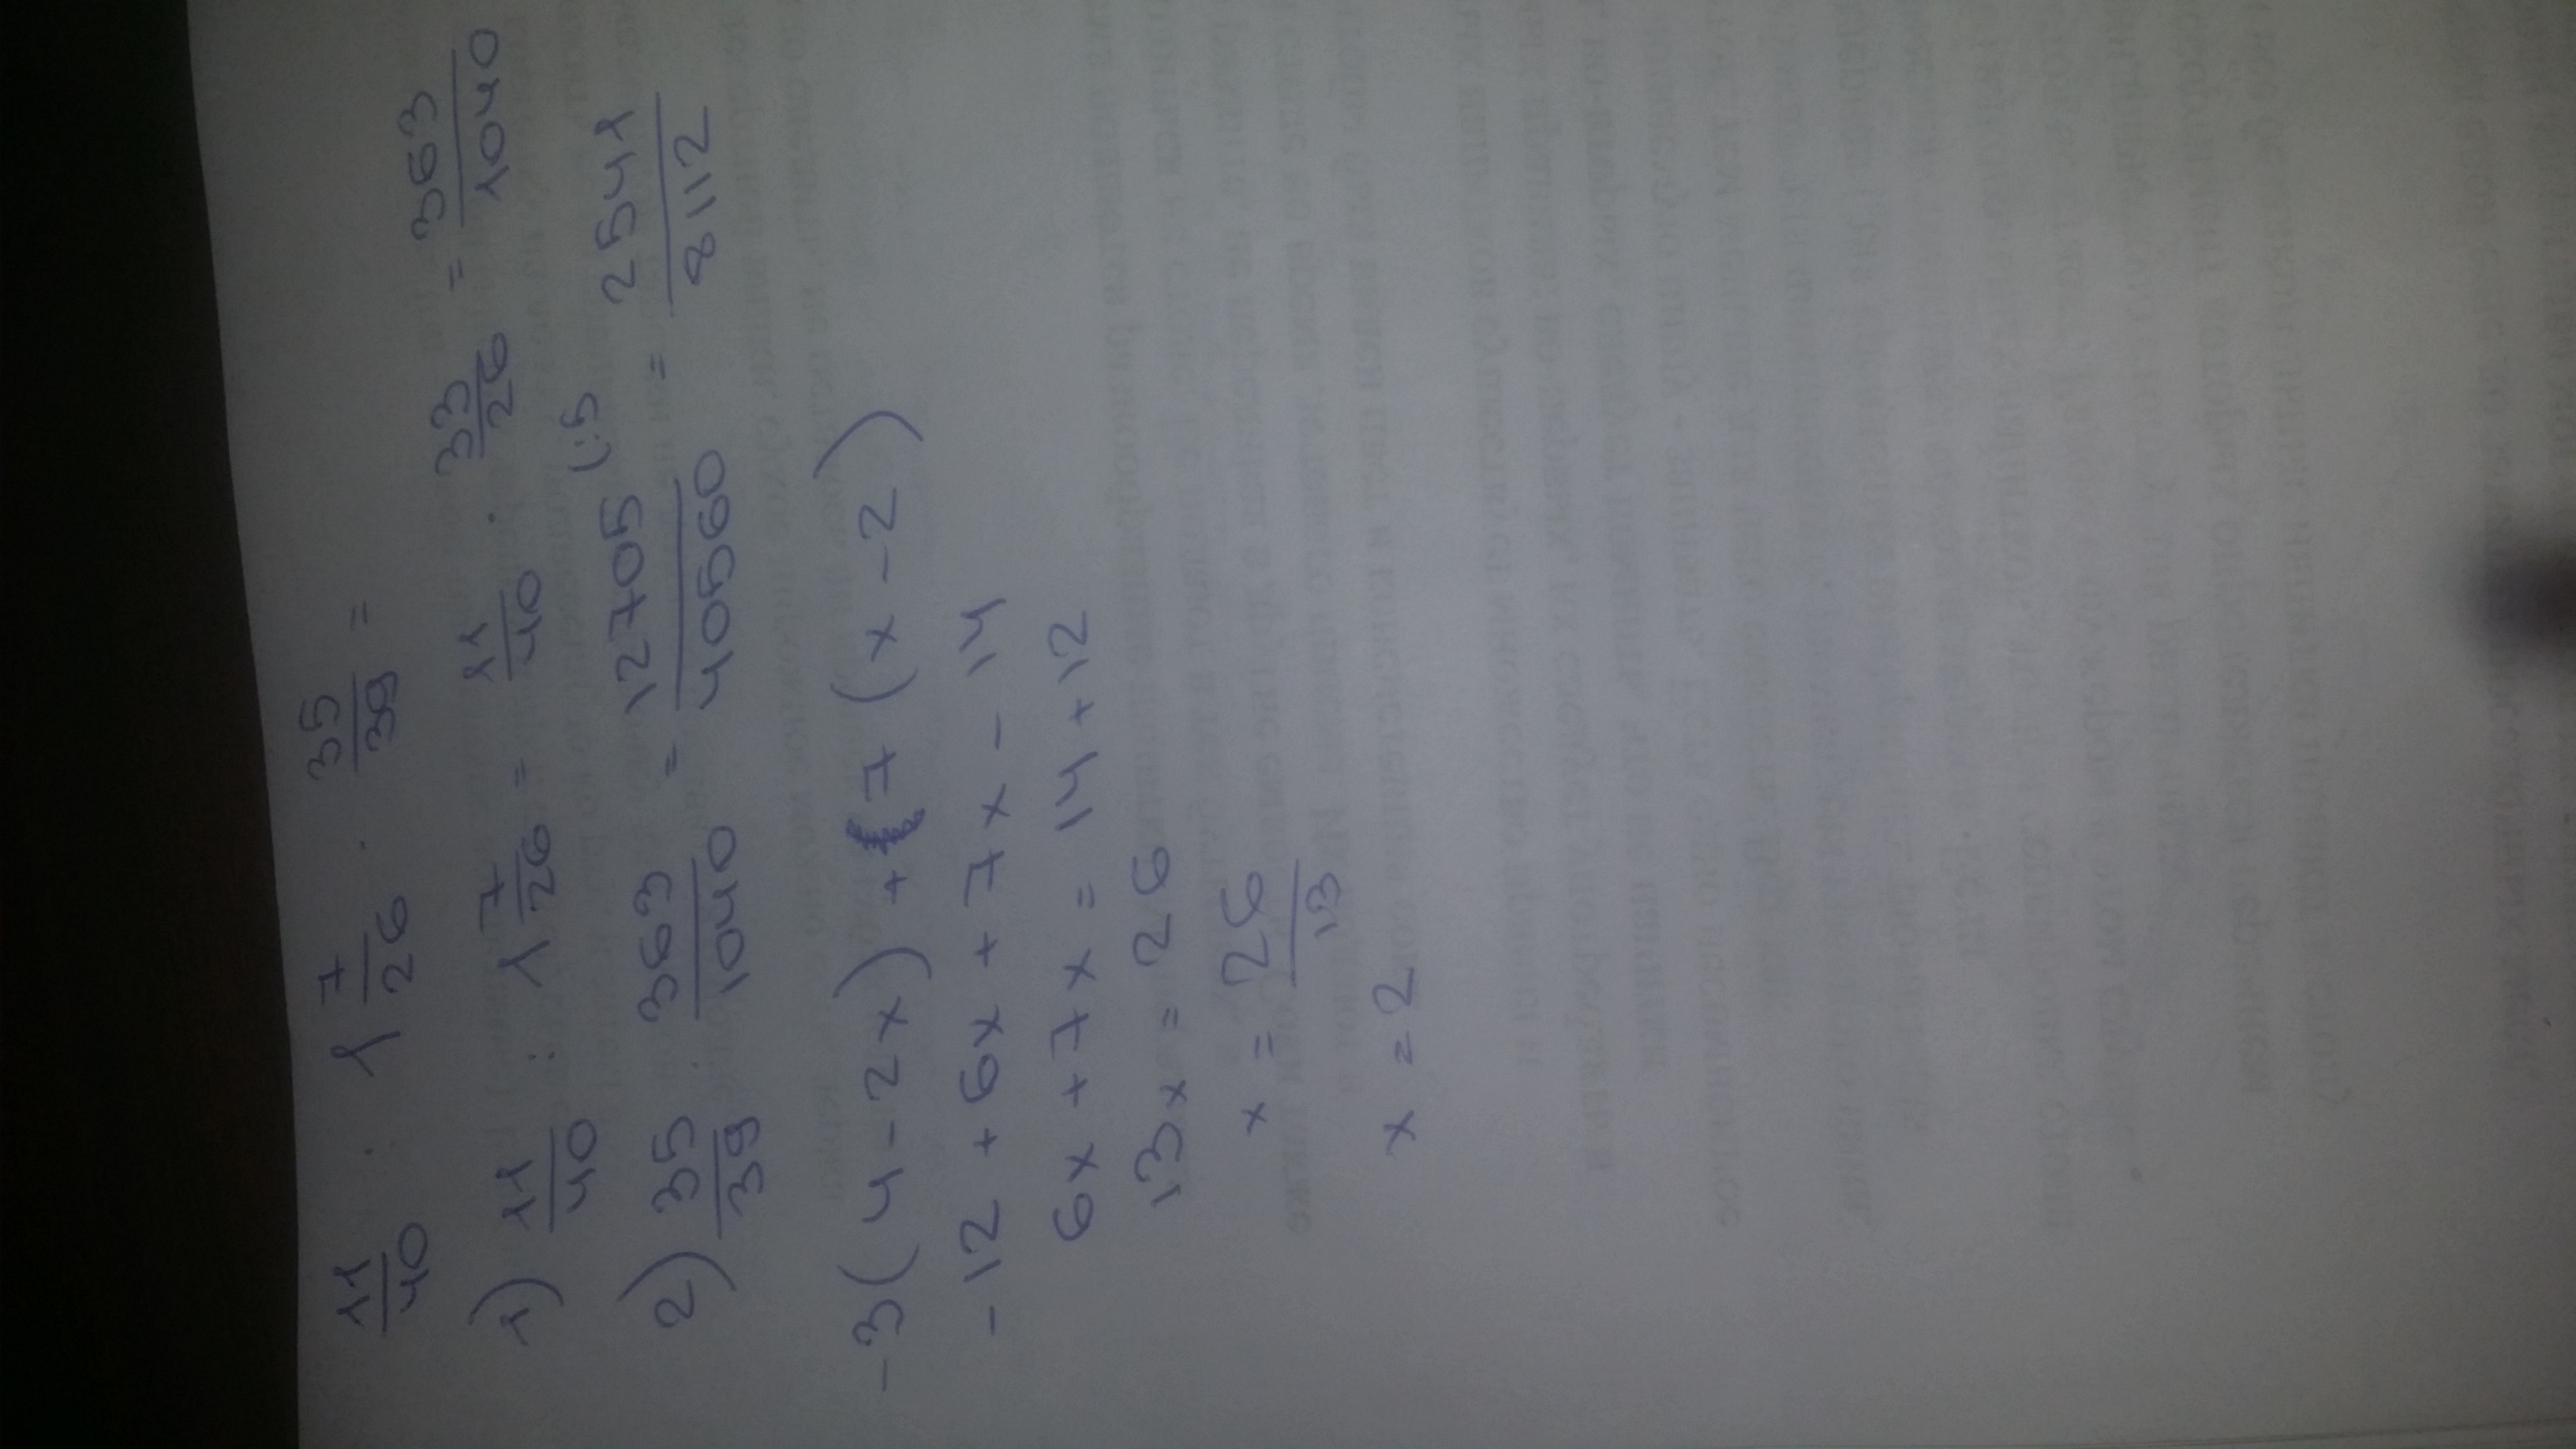 11/40 · 1 7/26 · 35/39 =
1) 11/40 : 1 7/26 = 11/40 · 33/26 = 363/1040
2) 35/39 · 363/1040 = 12705/40560 (:5 = 2541/8112
-3(4-2x)+(7(x-2)
-12+6x+7x-14
6x+7x=14+12
13x=26
x=26/13
x=2